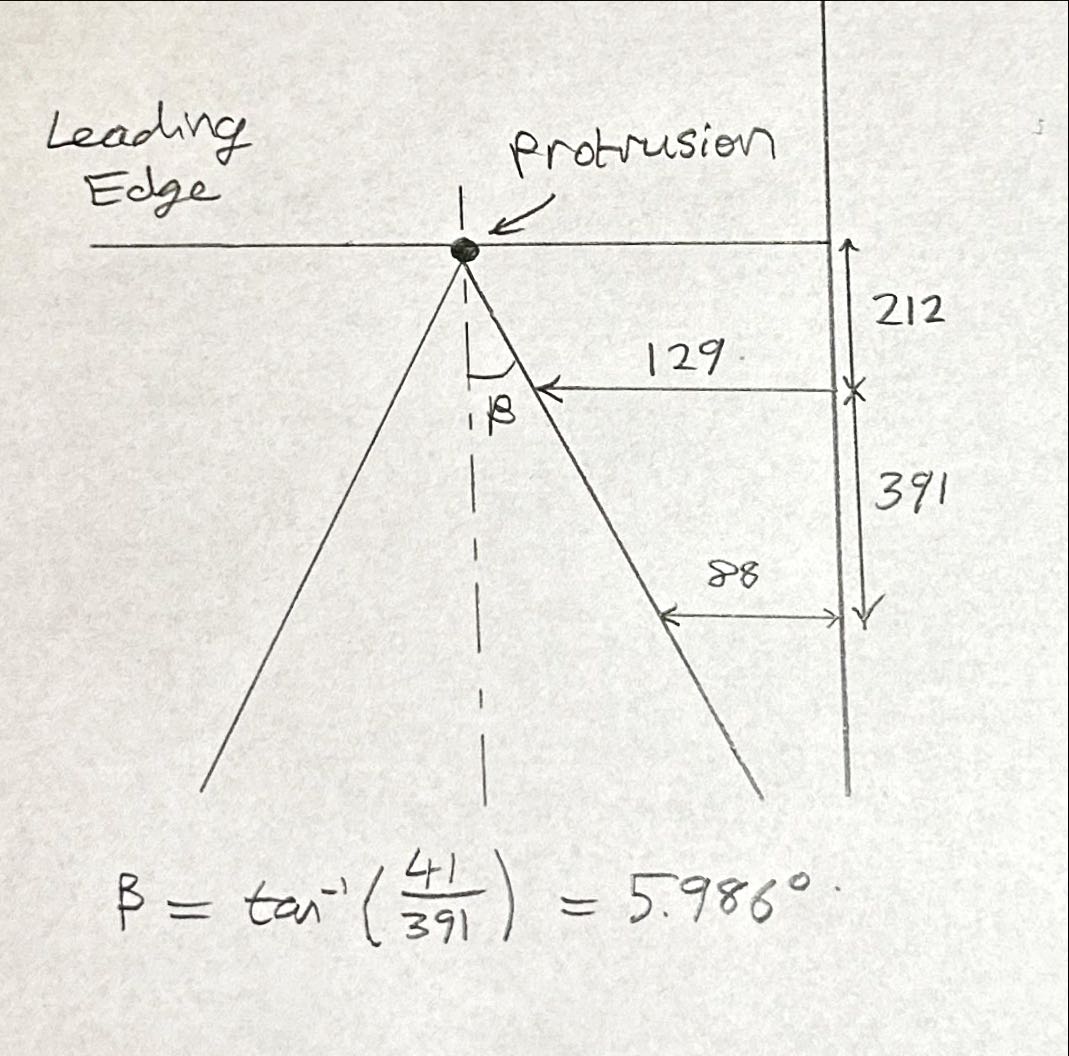 Leading
Edge
protrusion
212
129
β
391
88
β = tan⁻¹(41/391) = 5.986°